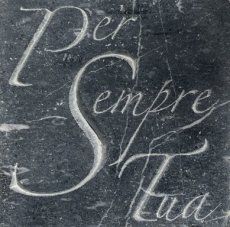 Per
Sempre
Tua